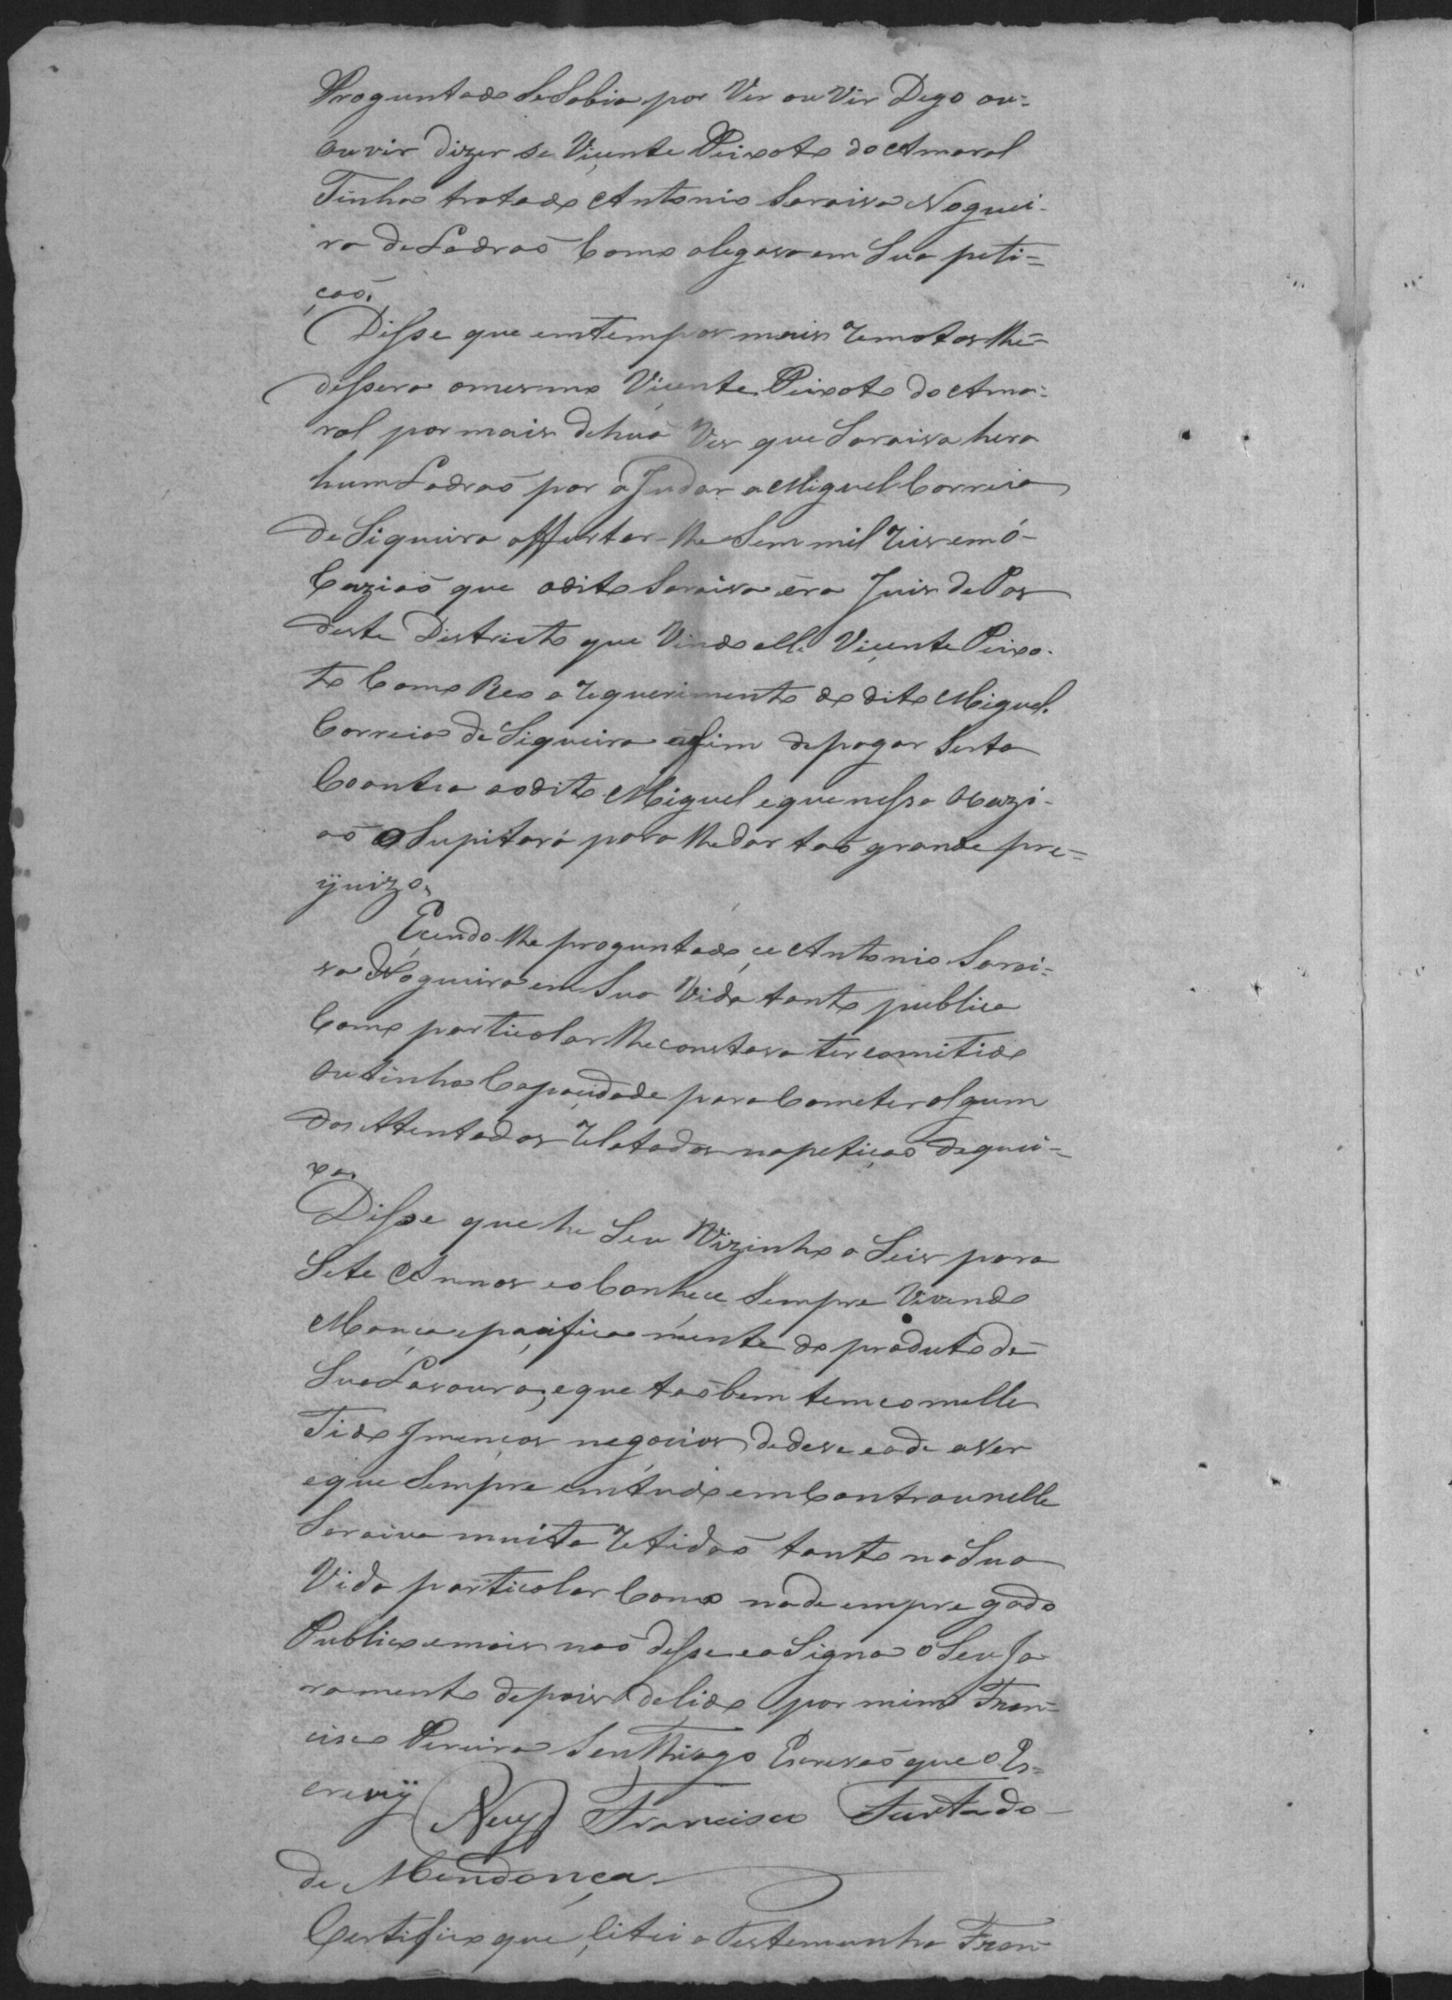 Proguntado Se Sabia por Ver ou Vir Digo ou=
ouvir dizer se Viçente Peixoto do Amaral
Tinha tratado Antonio Saraiva Noguei-
ra de Ladraõ Como alegava em Sua peti=
çaõ.
Disse que em tempos mais remotos lhe=
dessera o mesmo Viçente Peixoto do Ama=
ral por mais de huã Ves que Saraiva hera
hum Ladraõ por ajudar a Miguel Correia
de Siqueira affurtar-lhe Sem mil reis em ó-
Caziaõ que o dito Saraiva éra Juis de Pas
deste Districto que Vindo elle Viçente Peixo-
to Como Reo a requerimento do dito Miguel
Correia de Siqueira afim de pagar Serta
Coantia ao dito Miguel e que nessa Ocazi-
aõ o Supitará para lhe dar taõ grande pre=
ÿuizo.
Éçendo lhe proguntado çe Antonio Sarai=
va Nogueira em Sua Vida tanto publica
Como particolar lhe constava ter comitido
ou tinha Capaçidade para Cometer algum
dos Attentados relatados na petiçaõ de quei=
xa.
Disse que he Seu Vizinho a Seis para
Sete Annos e o Conhece Sempre Vivendo
Mança e paçificamente do produto de=
Sua Lavoura, e que taõbem tem com elle
Tido Jmenços negocios de deve e ade aver
e que Sempre em tudo emContrau nelle
Saraiva muita retidaõ tanto na Sua
Vida particolar Como na de empregado
Publico e mais naõ desse e aSigna o Seu Ja
ramento depois de lido por mim Fran=
cisco Pereira SenThiago Escrivaõ que o Es=
crevÿ (Neuy) Francisco Furtado
de Mendonça.
Certifico que çitei a Testemunha Fran=